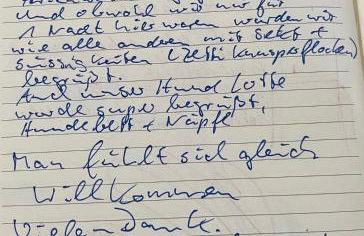 und obwohl wir nur für
1 Nacht hier waren wurden wir
wie alle anderen mit Sekt +
süssigkeiten (Zetti Knusperflocken)
begrüßt.
Auch unser Hund Lotte
wurde super begrüßt,
Hundebett + Näpfe
Man fühlt sich gleich
Willkommen
Vielen Dank.